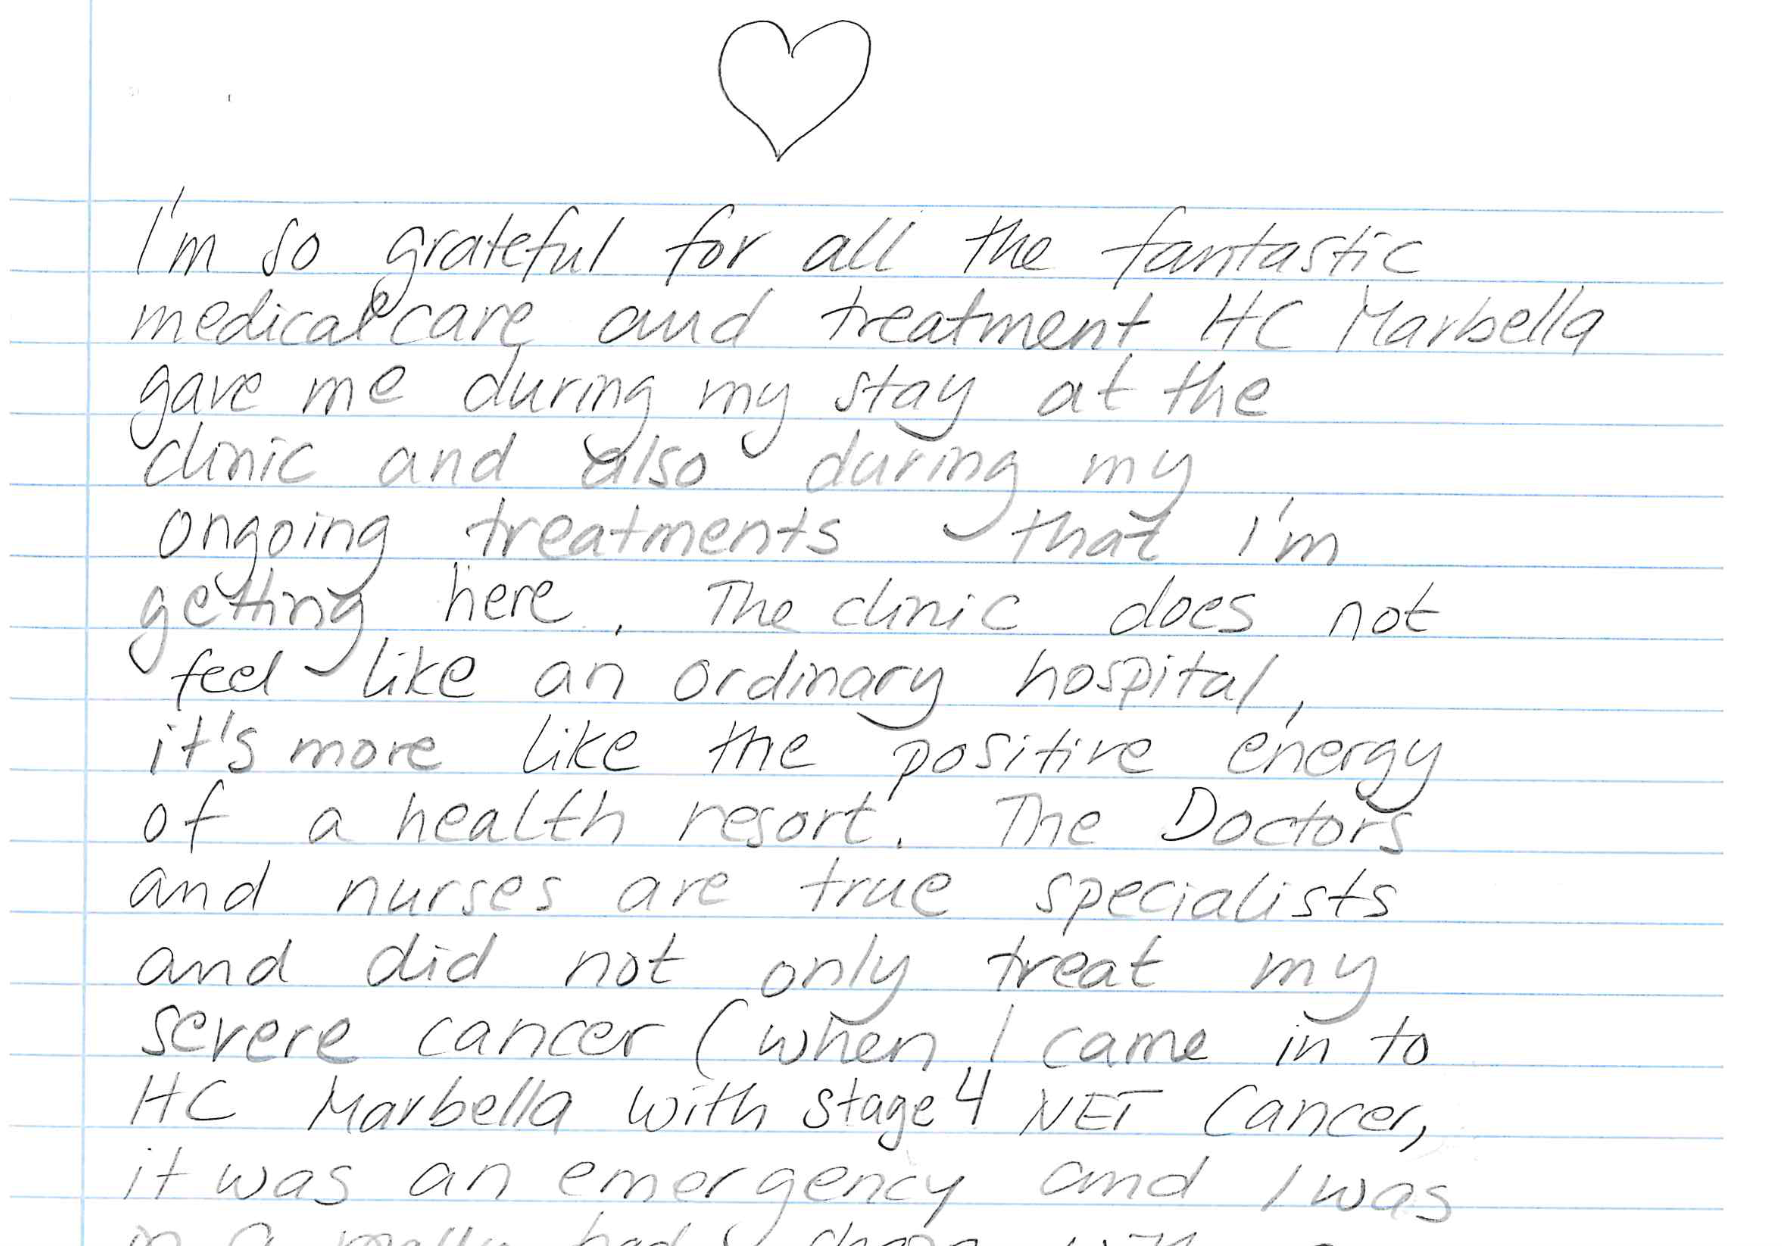 I'm so grateful for all the fantastic
medical care and treatment HC Marbella
gave me during my stay at the
clinic and also during my
ongoing treatments that I'm
getting here. The clinic does not
feel like an ordinary hospital,
it's more like the positive energy
of a health resort. The Doctors
and nurses are true specialists
and did not only treat my
severe cancer (when I came in to
HC Marbella with stage 4 NET Cancer,
it was an emergency and I was
in a really bad